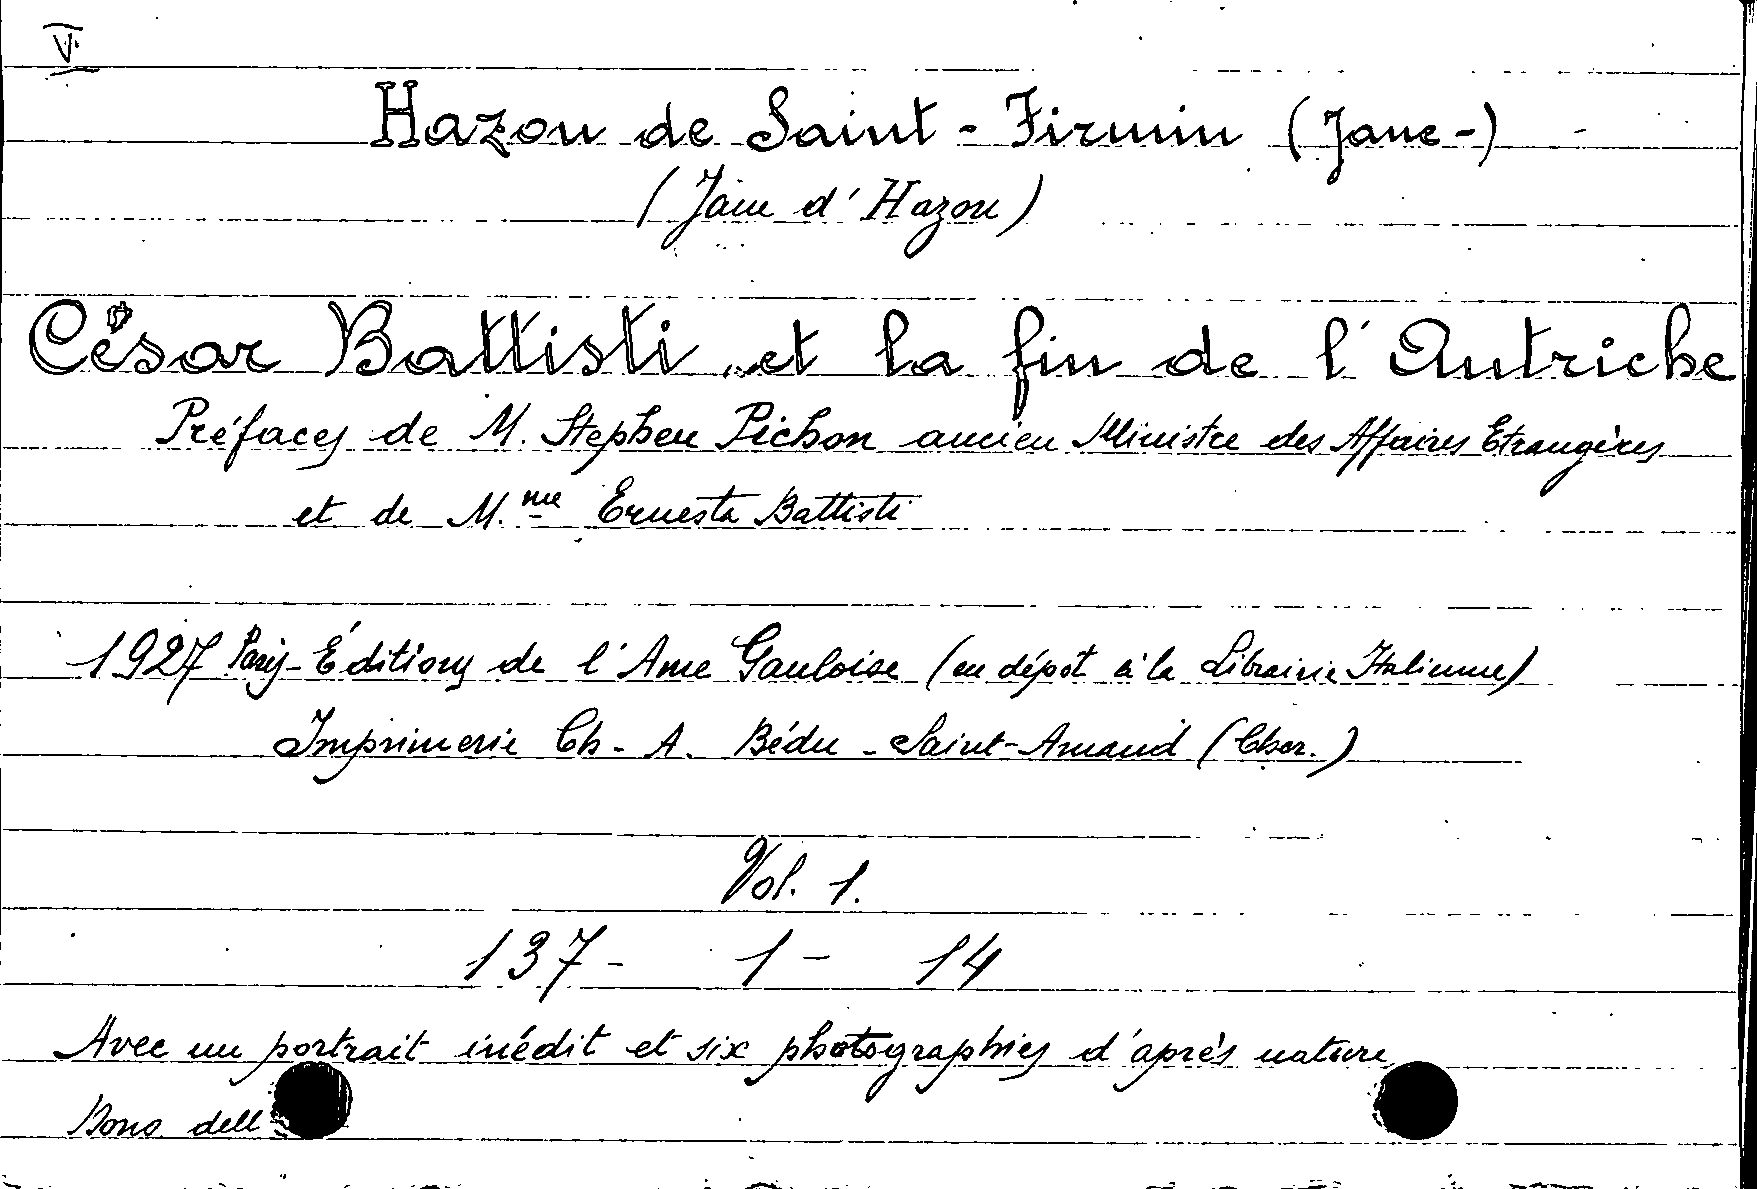 V.
Hazon de Saint - Firmin (Jane-)
(Jane d'Hazon)
César Battisti et la fin de l'Autriche
Préfaces de M. Stephen Pichon ancien Ministre des Affaires Etrangères
et de M.me Ernesta Battisti
1927 Paris - Éditions de l'Ame Gauloise (en dépot à la Librairie Italienne)
Imprimerie Ch. A. Bédu - Saint-Amand (Cher.)
Vol. 1.
137 - 1 - 14
Avec un portrait inédit et six photographies d'après nature
Dono dell